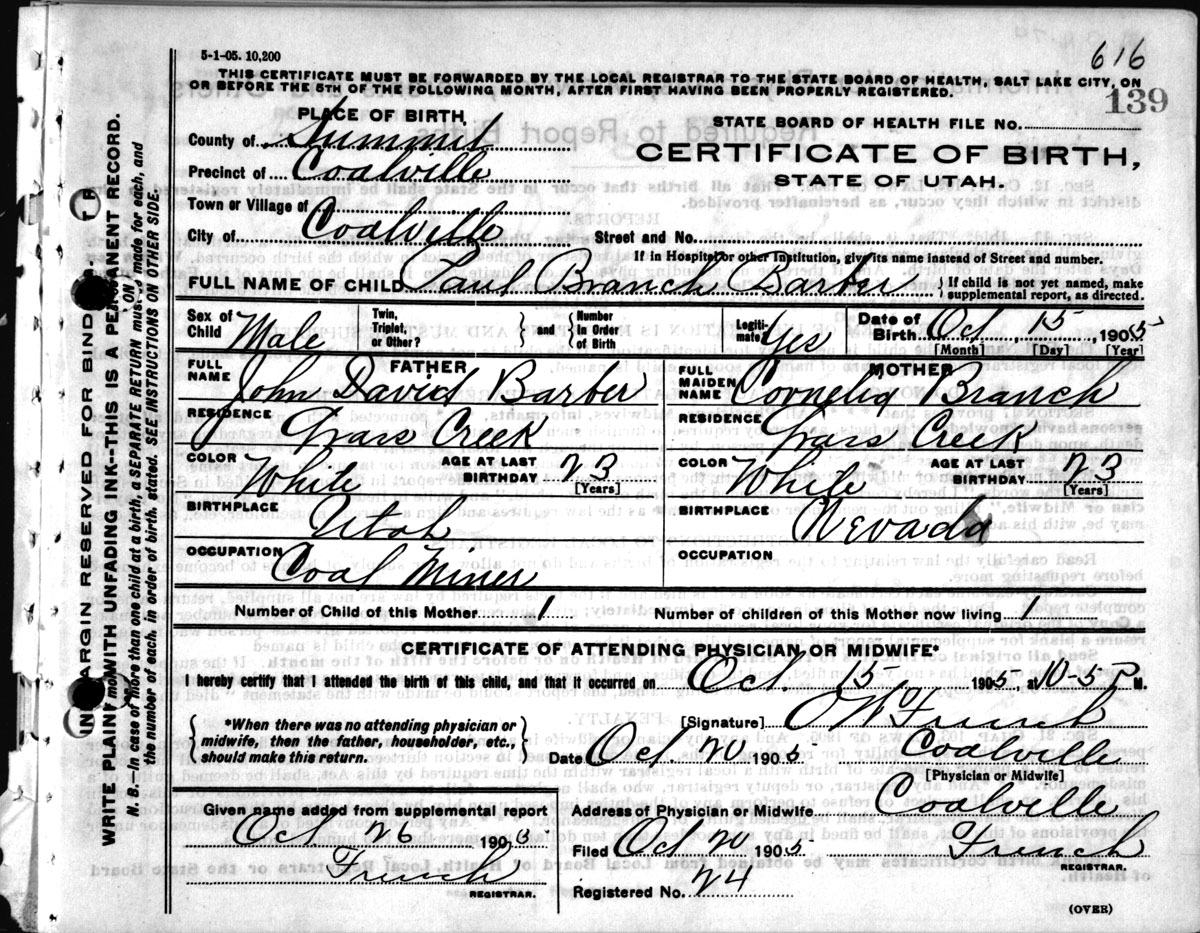 5-1-05. 10,200
616
THIS CERTIFICATE MUST BE FORWARDED BY THE LOCAL REGISTRAR TO THE STATE BOARD OF HEALTH, SALT LAKE CITY, ON
OR BEFORE THE 5TH OF THE FOLLOWING MONTH, AFTER FIRST HAVING BEEN PROPERLY REGISTERED.
139
PLACE OF BIRTH,
STATE BOARD OF HEALTH FILE NO.
County of Summit
CERTIFICATE OF BIRTH,
Precinct of Coalville
STATE OF UTAH.
Town or Village of
City of Coalville
Street and No.
If in Hospital or other Institution, give its name instead of Street and number.
FULL NAME OF CHILD Paul Branch Barber { If child is not yet named, make supplemental report, as directed.
Sex of Child Male Twin, Triplet, or Other? } and { Number in Order of Birth Legitimate? Yes Date of Birth Oct, 15, 1905
[Month] [Day] [Year]
FATHER
MOTHER
FULL NAME John David Barber
FULL MAIDEN NAME Cornelia Branch
RESIDENCE Grass Creek
RESIDENCE Grass Creek
COLOR White AGE AT LAST BIRTHDAY 23 [Years]
COLOR White AGE AT LAST BIRTHDAY 23 [Years]
BIRTHPLACE Utah
BIRTHPLACE Nevada
OCCUPATION Coal Miner
OCCUPATION
Number of Child of this Mother 1
Number of children of this Mother now living 1
CERTIFICATE OF ATTENDING PHYSICIAN OR MIDWIFE*
I hereby certify that I attended the birth of this child, and that it occurred on Oct. 15 1905, at 10-55 P M.
{ *When there was no attending physician or midwife, then the father, householder, etc., should make this return. }
[Signature] O W French
Date Oct 20 1905 Coalville
[Physician or Midwife]
Given names added from supplemental report
Address of Physician or Midwife Coalville
Oct 26 190
Filed Oct 20 1905 French
REGISTRAR.
French
REGISTRAR.
Registered No. 24
(OVER)
MARGIN RESERVED FOR BINDING
WRITE PLAINLY WITH UNFADING INK--THIS IS A PERMANENT RECORD.
N. B.--In case of more than one child at a birth, a SEPARATE RETURN must be made for each, and
the number of each, in order of birth, stated. SEE INSTRUCTIONS ON OTHER SIDE.